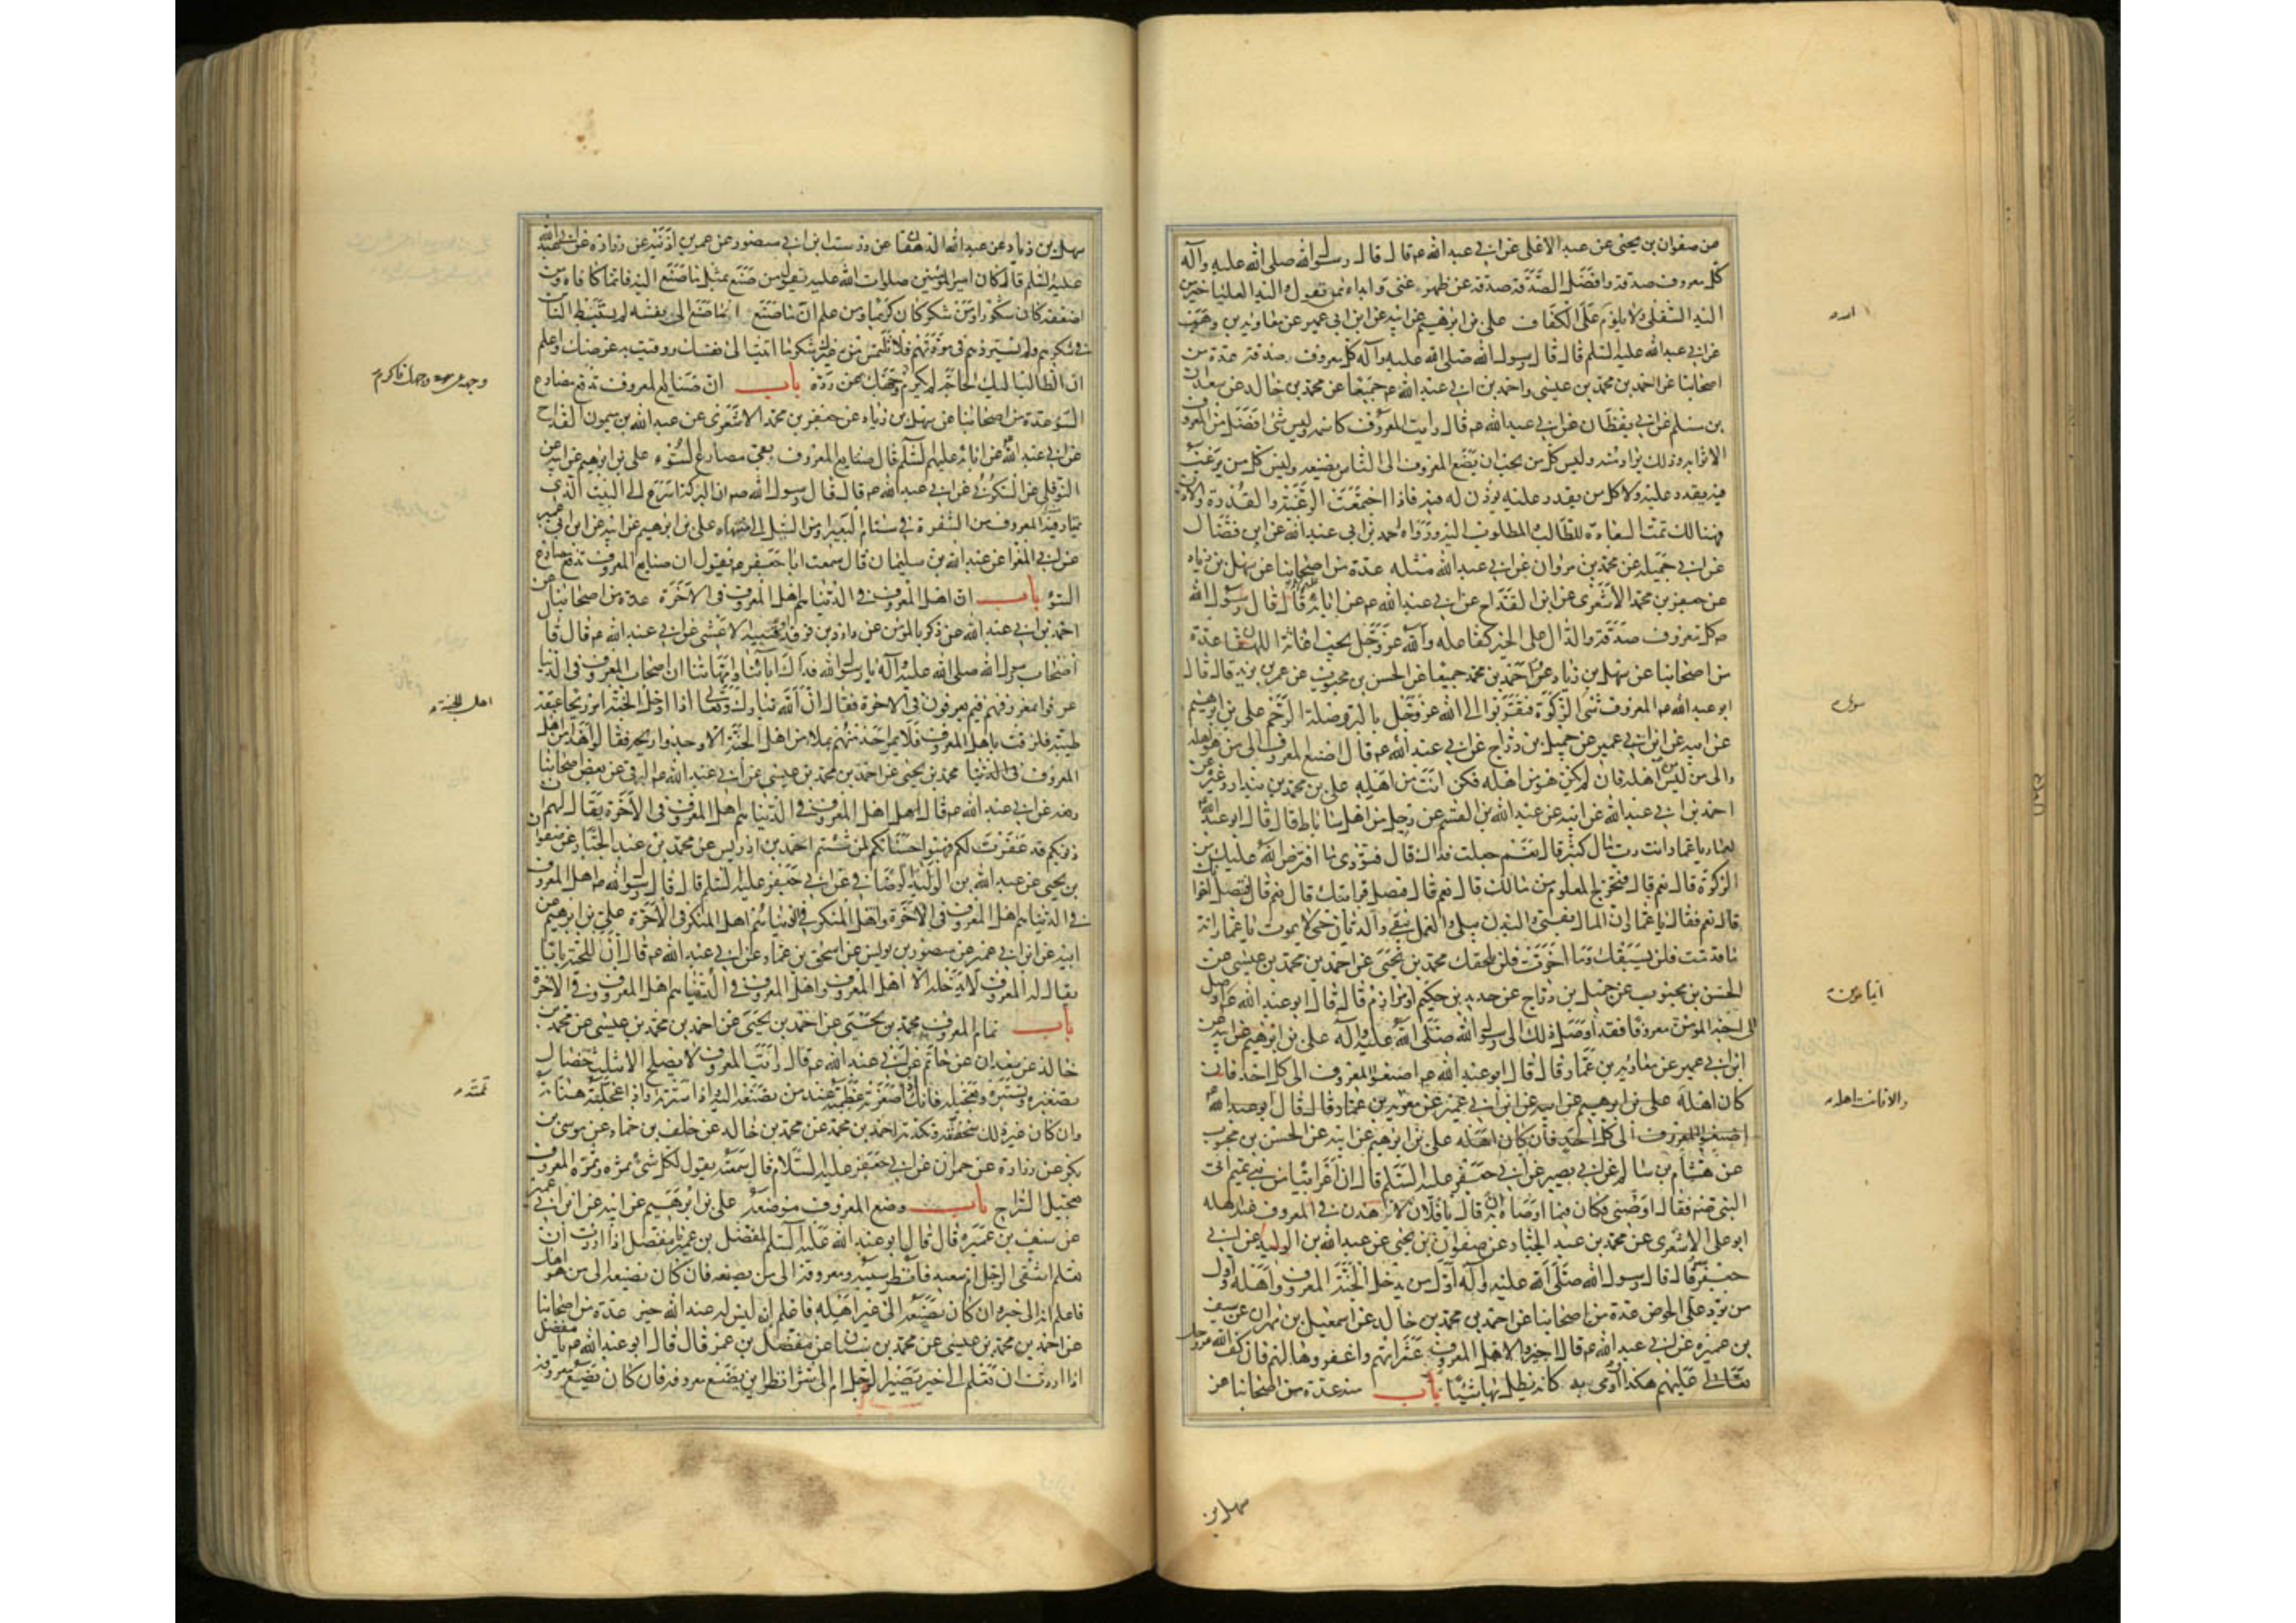 من صفوان بن يحيى عن عبد الاعلى عن ابي عبد الله ع قال قال رسول الله صلى الله عليه وآله
كل معروف صدقة وافضل الصدقة صدقة عن ظهر غنى وابداء بمن تعول واليد العليا خير من
اليد السفلى ولا يلوم على الكفاف على بن ابرهيم عن ابيه عن ابن ابي عمير عن معاوية بن وهب
عن ابي عبد الله عليه السلم قال قال رسول الله صلى الله عليه وآله كل معروف صدقة عدة من
اصحابنا عن احمد بن محمد بن عيسى واحمد بن ابي عبد الله ع جميعا عن محمد بن خالد عن سعدان
بن مسلم عن ابي يقظان عن ابي عبد الله ع قال رايت المعروف كاسمه وليس شئ افضل من المعروف
الا ثوابه وذلك يراد منه وليس كل من يحب ان يصنع المعروف الى الناس يصنعه وليس كل من يرغب
فيه يقدر عليه ولا كل من يقدر عليه يؤذن له فيه فاذا اجتمعت الرغبة والقدرة والاذن
فهنالك تمت السعادة للطالب والمطلوب اليه ورواه احمد بن ابي عبد الله عن ابن فضال
عن ابي جميلة عن محمد بن مروان عن ابي عبد الله مثله عدة من اصحابنا عن سهل بن زياد
عن جعفر بن محمد الاشعرى عن ابن القداح عن ابي عبد الله ع عن ابائه قال قال رسول الله
ص كل معروف صدقة والدال على الخير كفاعله والله عز وجل يحب اغاثة اللهفان عدة
من اصحابنا عن سهل بن زياد عن احمد بن محمد جميعا عن الحسن بن محبوب عن عمر بن يزيد قال قال
ابو عبد الله ع المعروف شئ سوى الزكوة فتقربوا الى الله عز وجل بالبر وصلة الرحم على بن ابرهيم
عن ابيه عن ابن ابي عمير عن جميل بن دراج عن ابي عبد الله ع قال اصنع المعروف الى من هو اهله
والى من ليس من اهله فان لم يكن هو من اهله فكن انت من اهله على بن محمد بن بندار وغيره عن
احمد بن ابي عبد الله عن ابيه عن عبد الله بن القسم عن رجل من اهل ساباط قال قال ابو عبد الله
لعمار يا عمار انت رب مال كثير قال نعم جعلت فداك قال فتؤدى ما افترض الله عليك من
الزكوة قال نعم قال فتخرج المعلوم من مالك قال نعم قال فتصل قرابتك قال نعم قال فتصل اخوانك
قال نعم فقال يا عمار ان المال يفنى والبدن يبلى والعمل يبقى والديان حى لا يموت يا عمار انه
ما قدمت فلن يسبقك وما اخرت فلن يلحقك محمد بن يحيى عن احمد بن محمد بن عيسى عن
الحسن بن محبوب عن جميل بن دراج عن حديد بن حكيم او مرازم قال قال ابو عبد الله ع من اوصل
الى اخيه المؤمن معروفا فقد اوصل ذلك الى رسول الله صلى الله عليه وآله على بن ابرهيم عن ابيه عن
ابن ابي عمير عن معاوية بن عمار قال قال ابو عبد الله ع اصنعوا المعروف الى كل احد فان
كان اهله على بن ابرهيم عن ابيه عن ابن ابي عمير عن معوية بن عمار قال قال ابو عبد الله ع
اصنعوا المعروف الى كل احد فان كان اهله على بن ابرهيم عن ابيه عن الحسن بن محبوب
عن هشام بن سالم عن ابي بصير عن ابي جعفر عليه السلم قال ان اعرابيا من بني تميم اتى
النبي ص فقال اوصنى فكان فيما اوصاه ان قال يا فلان لا تزهدن في المعروف عند اهله
ابو على الاشعرى عن محمد بن عبد الجبار عن صفوان بن يحيى عن عبد الله بن الوليد عن ابي
جعفر قال قال رسول الله صلى الله عليه وآله اول من يدخل الجنة المعروف واهله واول
من يرد على الحوض عدة من اصحابنا عن احمد بن محمد بن خالد عن اسمعيل بن مهران عن سيف
بن عميرة عن ابي عبد الله ع قال اجيزوا لاهل المعروف عثراتهم واغفروها لهم فان كف الله عز وجل
تعالى عليهم هكذا واومى بيده كانه يظل بها شيئا باب منه عدة من اصحابنا عن
سهل بن
سهل بن زياد عن عبد الله الدهقان عن درست ابن ابي منصور عن عمر بن اذينة عن زرارة عن ابي عبد الله
عليه السلم قال كان امير المؤمنين صلوات الله عليه يقول من صنع بمثل ما صنع اليه فانما كافاه ومن
اضعفه كان شكورا ومن شكر كان كريما ومن علم ان ما صنع انما صنع الى نفسه لم يستبط الناس
في شكرهم ولم يستزدهم في مودتهم فلا تلتمس من غيرك شكر ما اتيت الى نفسك ووقيت به عرضك واعلم
ان الطالب اليك الحاجة لم يكرم وجهك عن رده باب ان صنايع المعروف تدفع مصارع
السوء عدة من اصحابنا عن سهل بن زياد عن جعفر بن محمد الاشعرى عن عبد الله بن ميمون القداح
عن ابي عبد الله عن ابائه عليهم السلم قال صنايع المعروف تقى مصارع السوء على بن ابرهيم عن ابيه عن
النوفلى عن السكونى عن ابي عبد الله ع قال قال رسول الله ص ان البركة اسرع الى البيت الذى
يمتار فيه المعروف من الشفرة في سنام البعير او من السيل الى منتهاه على بن ابرهيم عن ابيه عن ابن ابي عمير
عن ابي المغرا عن عبد الله بن سليمان قال سمعت ابا جعفر ع يقول ان صنايع المعروف تدفع مصارع
السوء باب ان اهل المعروف في الدنيا هم اهل المعروف في الآخرة عدة من اصحابنا عن
احمد بن ابي عبد الله عن زكريا المؤمن عن داود بن فرقد او قتيبة الاعشى عن ابي عبد الله ع قال قال
اصحاب رسول الله صلى الله عليه وآله يا رسول الله فداك اباؤنا وامهاتنا ان اصحاب المعروف في الدنيا
عرفوا بمعروفهم فبم يعرفون في الاخرة فقال ان الله تبارك وتعالى اذا ادخل اهل الجنة الجنة امر ريحا عبقة
طيبة فلزقت باهل المعروف فلا يمر احد منهم بملا من اهل الجنة الا وجدوا ريحه فقالوا هذا من اهل
المعروف في الدنيا محمد بن يحيى عن احمد بن محمد بن عيسى عن ابي عبد الله ع البرقى عن بعض اصحابنا
رفعه عن ابي عبد الله ع قال اهل المعروف في الدنيا هم اهل المعروف في الآخرة يقال لهم ان
ذنوبكم قد غفرت لكم فهبوا حسناتكم لمن شئتم احمد بن ادريس عن محمد بن عبد الجبار عن صفوان
بن يحيى عن عبد الله بن الوليد الوصافى عن ابي جعفر عليه السلم قال قال رسول الله ص اهل المعروف
في الدنيا هم اهل المعروف في الآخرة واهل المنكر في الدنيا هم اهل المنكر في الآخرة على بن ابرهيم عن
ابيه عن ابن ابي عمير عن منصور بن يونس عن اسحق بن عمار عن ابي عبد الله ع قال ان للجنة بابا
يقال له المعروف لا يدخله الا اهل المعروف واهل المعروف في الدنيا هم اهل المعروف في الآخرة
باب تمام المعروف محمد بن يحيى عن احمد بن محمد بن عيسى عن محمد بن
خالد عن سعدان عن حاتم عن ابي عبد الله ع قال رايت المعروف لا يصلح الا بثلث خصال
تصغيره وتستيره وتعجيله فانك اذا صغرته عظمته عند من تصنعه اليه واذا سترته واذا عجلته هناته
وان كان غير ذلك سخفته ونكدته احمد بن محمد عن محمد بن خالد عن خلف بن حماد عن موسى بن
بكر عن زرارة عن حمران عن ابي جعفر عليه السلام قال سمعته يقول لكل شئ ثمرة وثمرة المعروف
تعجيل السراح باب وضع المعروف موضعه على بن ابرهيم عن ابيه عن ابن ابي عمير
عن سيف بن عميرة قال قال ابو عبد الله عليه السلم لمفضل بن عمر يا مفضل اذا اردت ان
تعلم اشقى الرجل ام سعيد فانظر سيبه ومعروفه الى من يصنعه فان كان يصنعه الى من هو اهله
فاعلم انه الى خير وان كان يصنعه الى غير اهله فاعلم انه ليس له عند الله خير عدة من اصحابنا
عن احمد بن محمد بن عيسى عن محمد بن سنان عن مفضل بن عمر قال قال ابو عبد الله ع يا مفضل
اذا اردت ان تعلم الى خير يصير الرجل ام الى شر انظر اين يضع معروفه فان كان يضع معروفه